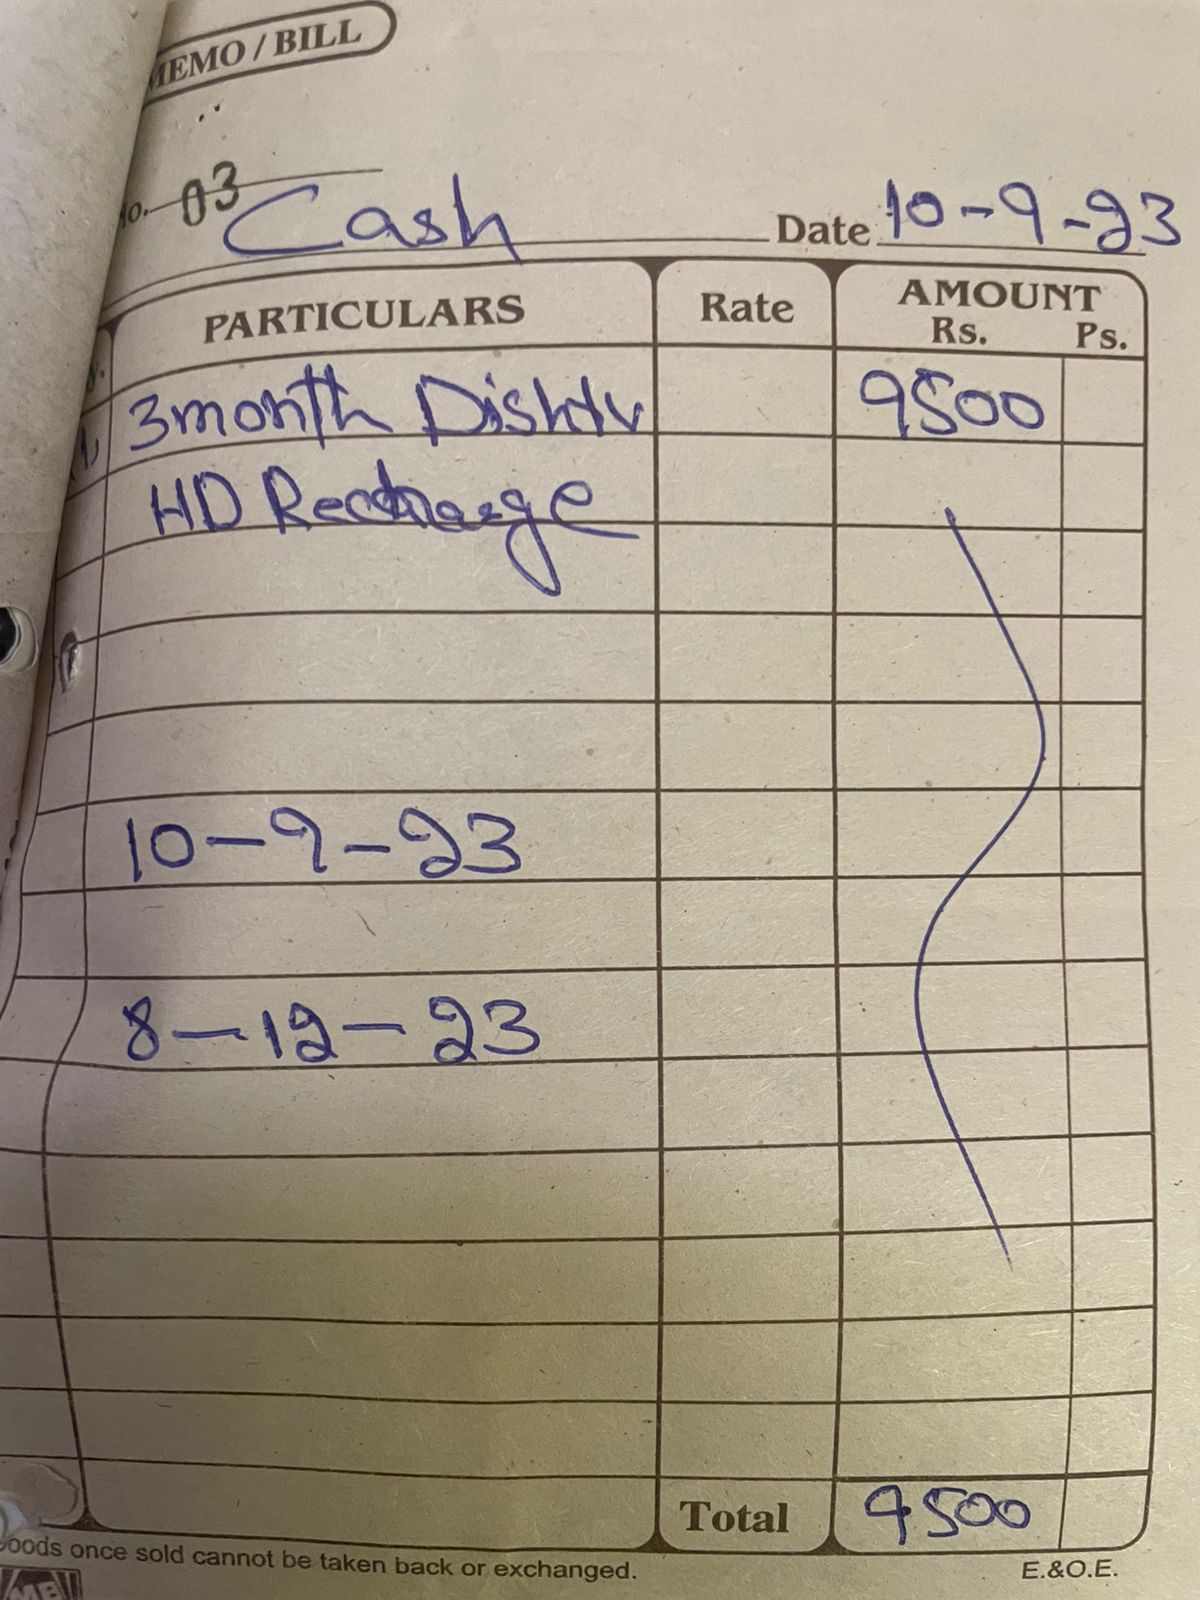 MEMO / BILL
No. 03
Cash Date 10-9-23
PARTICULARS Rate AMOUNT
Rs. Ps.
1, 3month Dishtv 9500
HD Recharge
10-9-23
8-12-23
Total 9500
Goods once sold cannot be taken back or exchanged. E.&O.E.